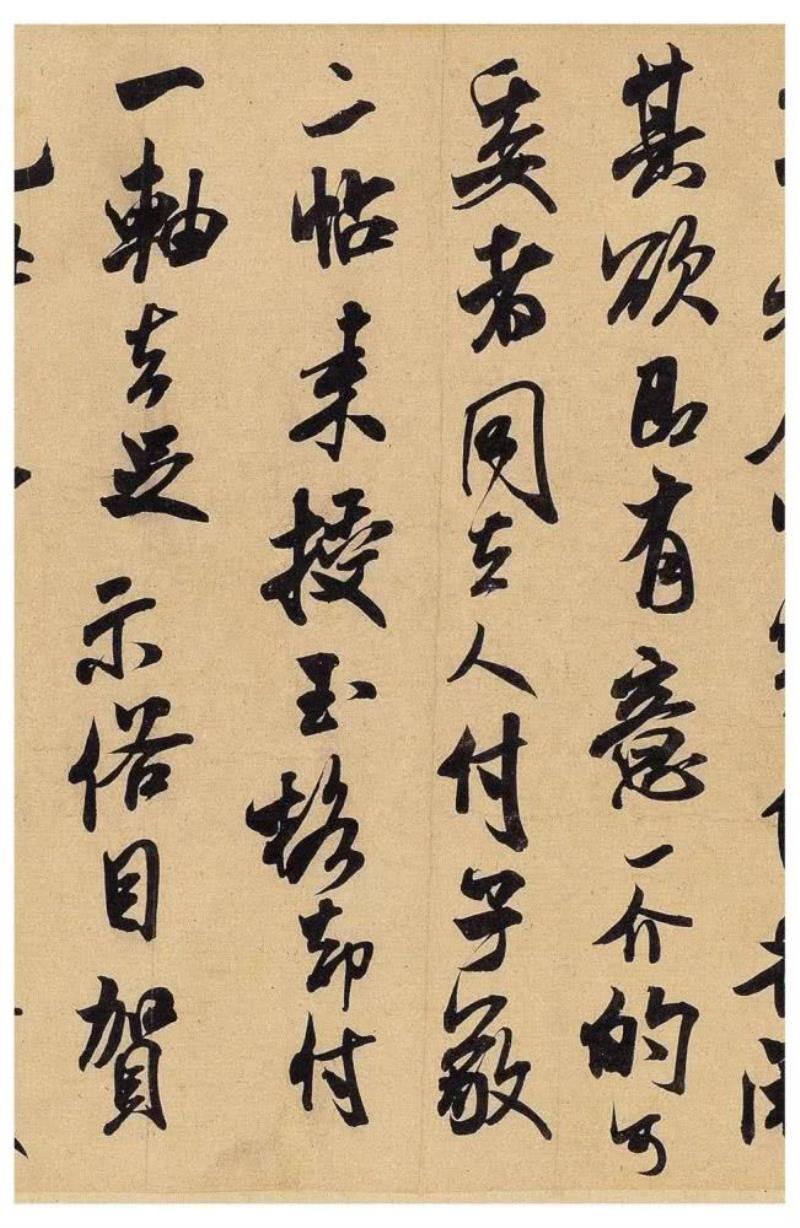 其欲即有意一介的可
委者同去人付子敬
二帖来授玉格却付
一軸去足示俗目賀